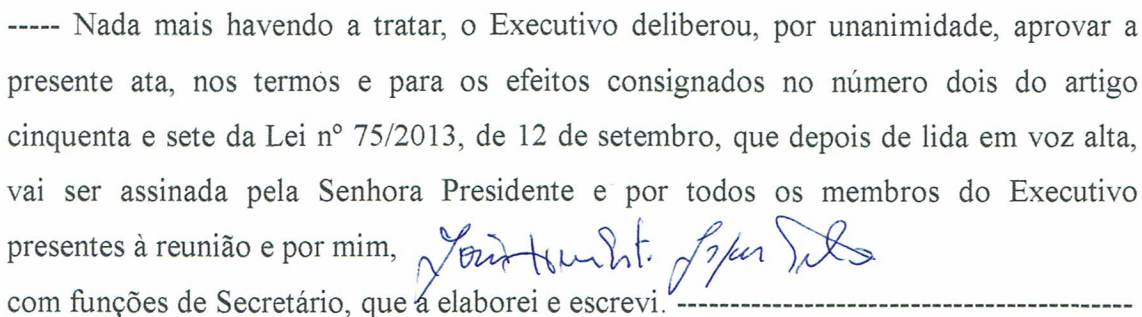 ----- Nada mais havendo a tratar, o Executivo deliberou, por unanimidade, aprovar a
presente ata, nos termos e para os efeitos consignados no número dois do artigo
cinquenta e sete da Lei nº 75/2013, de 12 de setembro, que depois de lida em voz alta,
vai ser assinada pela Senhora Presidente e por todos os membros do Executivo
presentes à reunião e por mim,
com funções de Secretário, que a elaborei e escrevi. ------------------------------------------